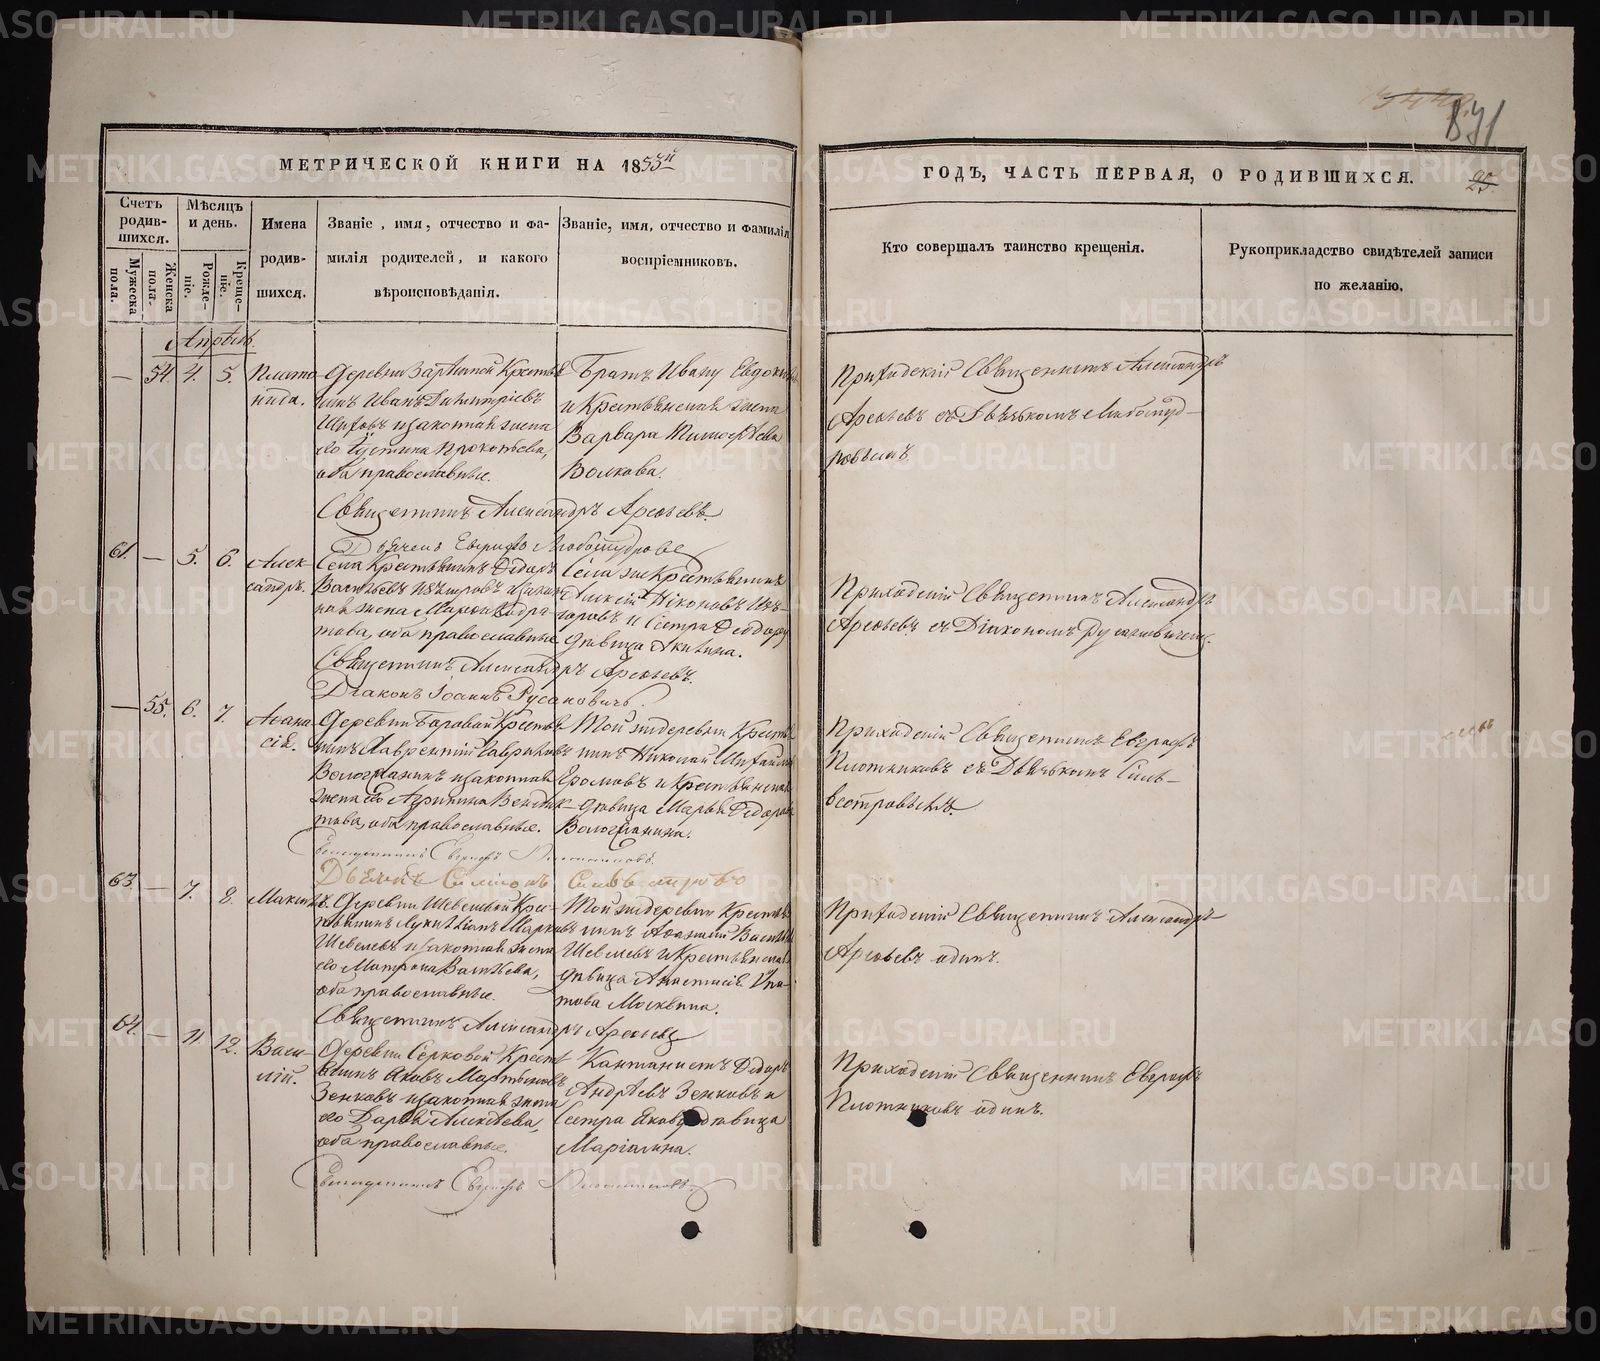 МЕТРИЧЕСКОЙ КНИГИ НА 1853й
ГОДЪ, ЧАСТЬ ПЕРВАЯ, О РОДИВШИХСЯ.
831
25
Счетъ родив-шихся.
Мужеска пола.
Женска пола.
Мѣсяцъ и день.
Рожде-ніе.
Креще-ніе.
Имена
родив-
шихся.
Званіе, имя, отчество и фа-
милія родителей, и какого
вѣроисповѣданія.
Званіе, имя, отчество и фамилія
воспріемниковъ.
Кто совершалъ таинство крещенія.
Рукоприкладство свидѣтелей записи
по желанію.
Апрѣль.
— 54. 4. 5.
Плато-
нида.
Деревни Крестья
нинъ Иванъ Димитріевъ
и законная жена
его Іустина Прокопьева,
оба православные.
Братъ Ивану Евдокимъ
и Крестьянская жена
Варвара Тимофѣева
Волкова.
Приходскій Священникъ Александръ
Арсеньевъ съ Дьячкомъ Любомуд-
ровымъ
Священникъ Александръ Арсеньевъ.
Дьячекъ Евграфъ Любомудровъ
61. — 5. 6.
Алек-
сандръ.
Села Крестьянинъ Ѳедоръ
Васильевъ и закон
ная жена
това, оба православные
Села же Крестьянинъ
Алексій Никоновъ
и Сестра Ѳеодору
дѣвица Акилина.
Приходскій Священникъ Александръ
Арсеньевъ съ Діакономъ Русановичемъ.
Священникъ Александръ Арсеньевъ.
Діаконъ Іоаннъ Русановичъ.
— 55. 6. 7.
Аѳана-
сія.
Деревни Боровой Крестья
нинъ Лаврентій Гавриловъ
Вологжанинъ и законная
жена его Агрипина
това, оба православные.
Той же деревни Крестья
нинъ Николай Михайловъ
Еромовъ и Крестьянская
дѣвица Марья Ѳедорова
Вологжанина.
Приходскій Священникъ Евграфъ
Плотниковъ съ Дьячкомъ Силь-
вестровымъ.
Священникъ Евграфъ Плотниковъ.
Дьячекъ Симеонъ Сильвестровъ
63. — 7. 8.
Максимъ.
Деревни Шевелевой Кре-
стьянинъ Лукиліанъ Марковъ
Шевелевъ и законная жена
его Матрона Васильева,
оба православные.
Той же деревни Крестья
нинъ Аѳанасій Василь
Шевелевъ и Крестьянская
дѣвица Анастасія Ипа-
това Москвина.
Приходскій Священникъ Александръ
Арсеньевъ одинъ.
Священникъ Александръ Арсеньевъ
64. — 11. 12.
Васи-
лій.
Деревни Серковой Крест
янинъ Яковъ Мартыновъ
Зенковъ и законная жена
его Дарья Алексѣева,
оба православные.
Кантонистъ Ѳедоръ
Андреевъ Зенковъ и
Сестра Якову дѣвица
Маріамна.
Приходскій Священникъ Евграфъ
Плотниковъ одинъ.
Священникъ Евграфъ Плотниковъ
METRIKI.GASO-URAL.RU